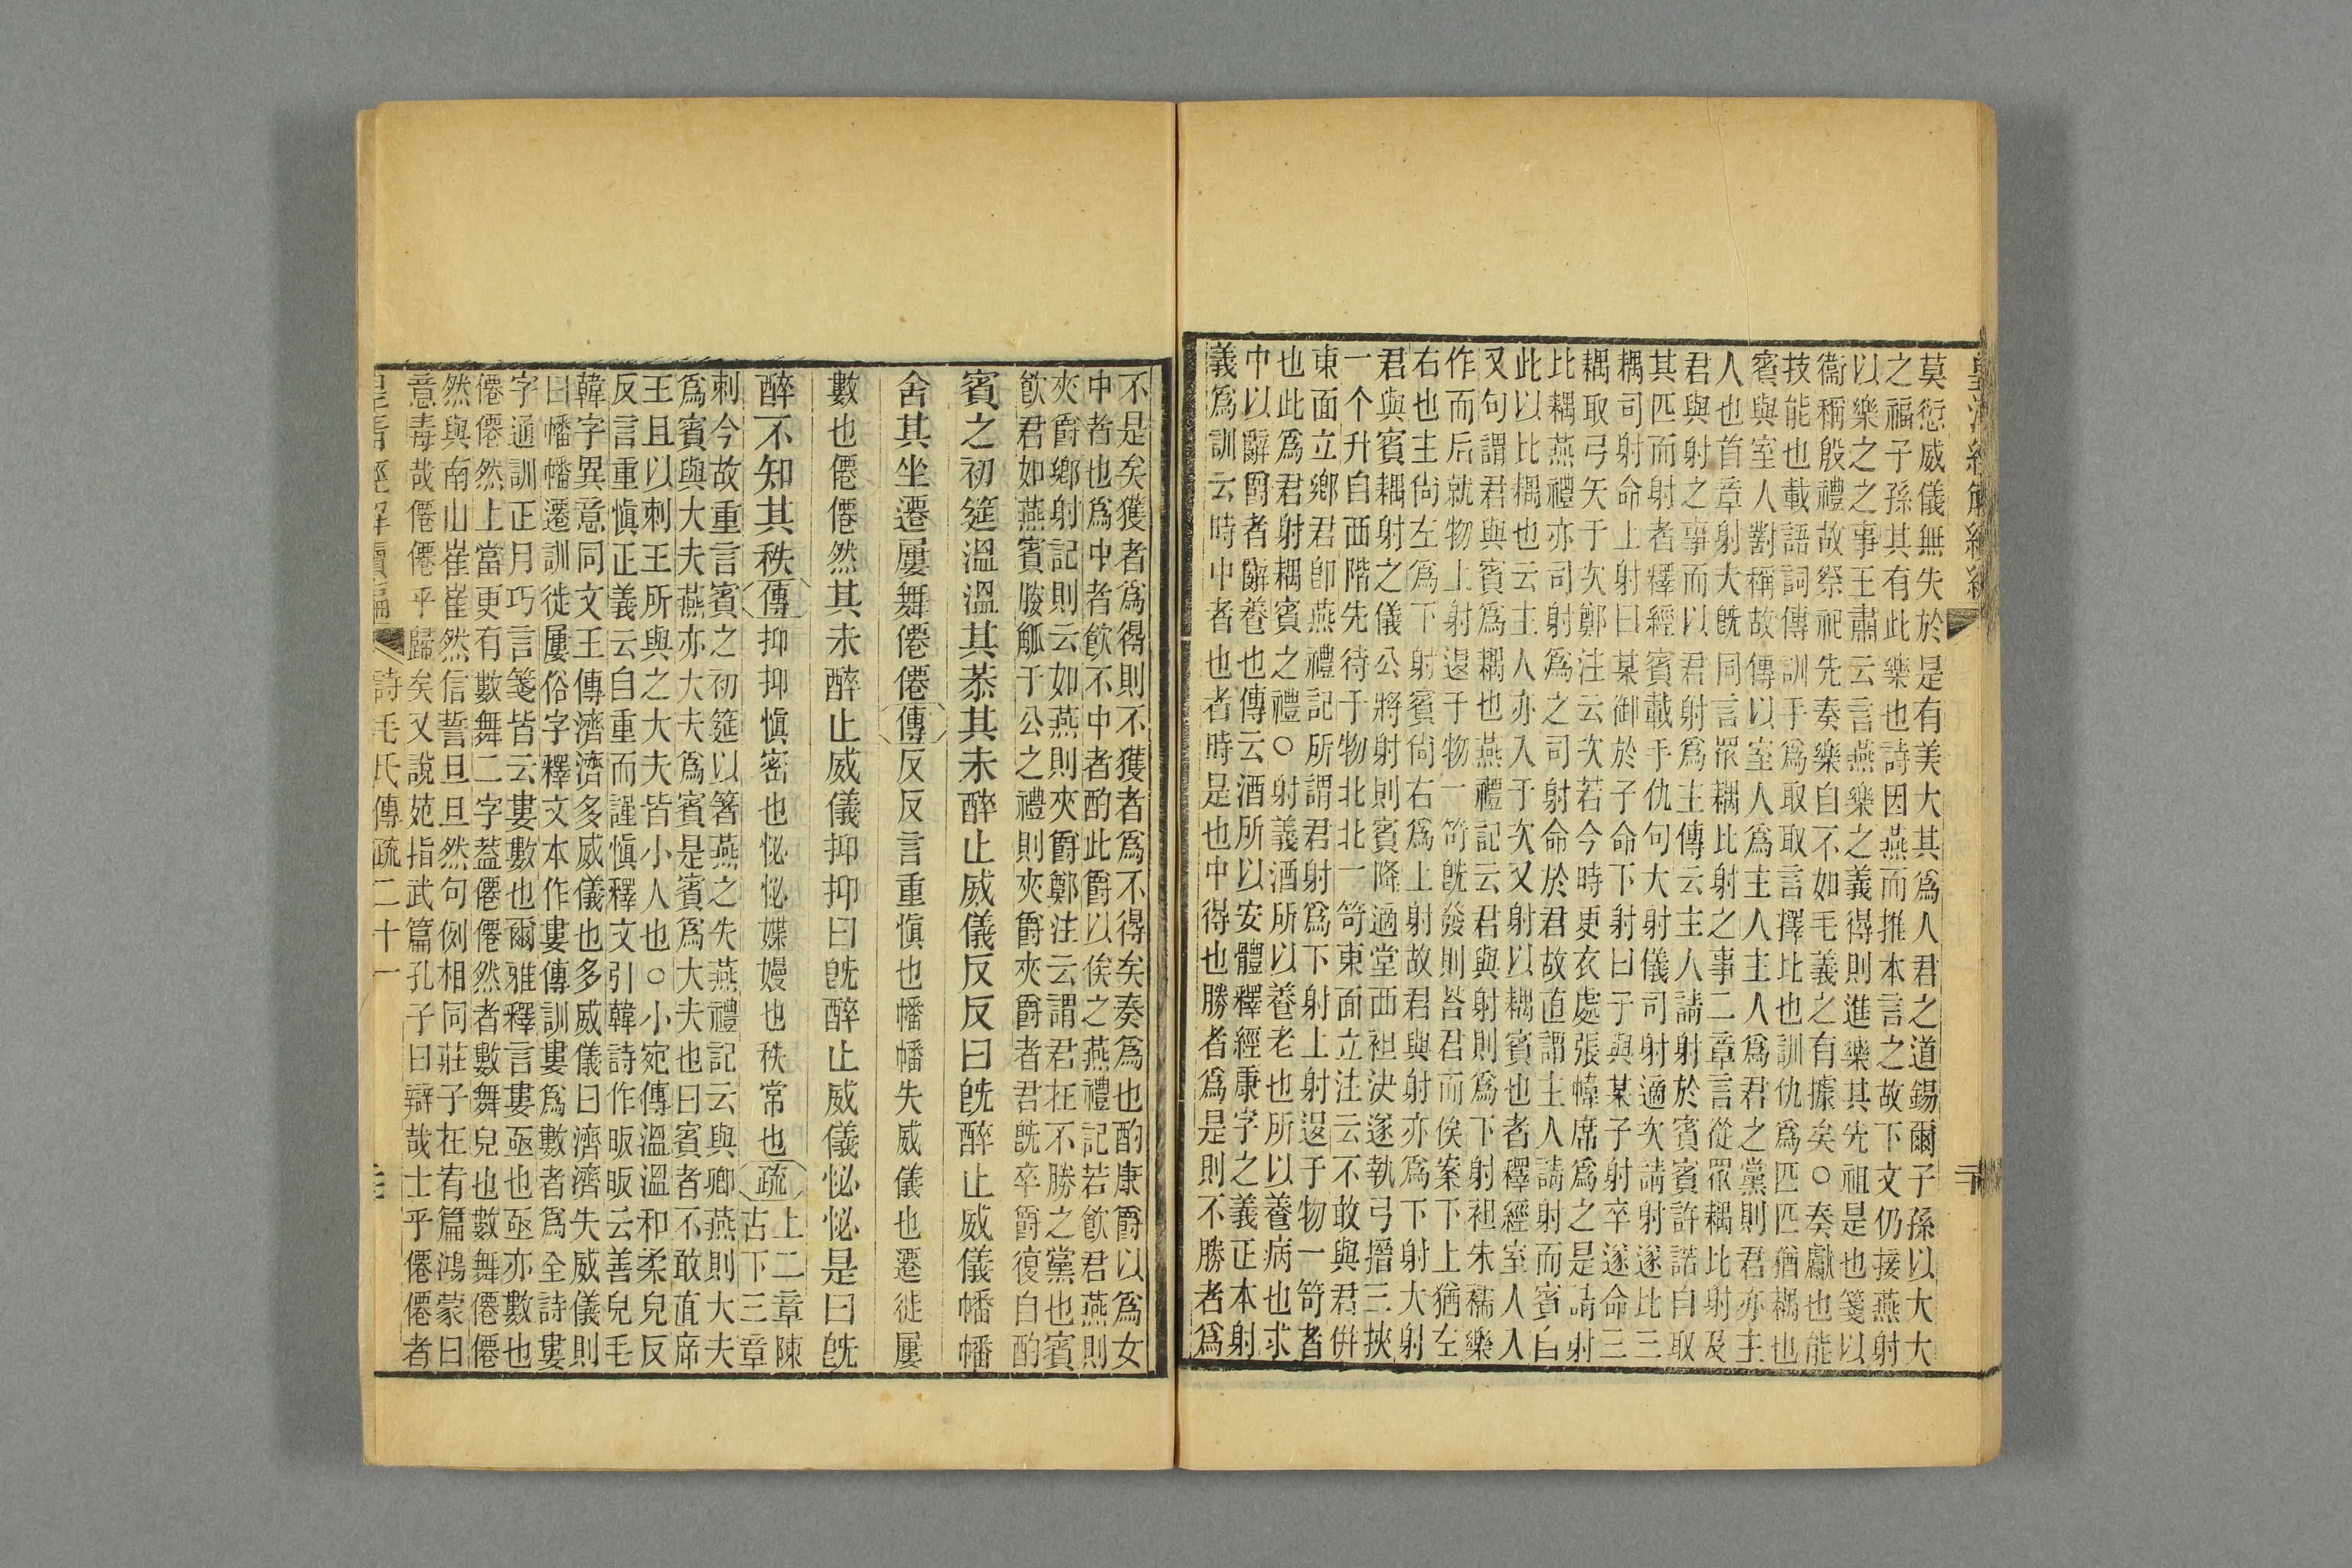 莫愆威儀無失於是有美大其爲人君之道錫爾子孫以大大
之福子孫其有此樂也詩因燕而推本言之故下文仍接燕射
以樂之之事王肅云言燕樂之義得則進樂其先祖是也箋以
衞稱殷禮故祭祀先奏樂自不如毛義之有據矣○奏獻也能
技能也載語詞傳訓手爲取取言擇比也訓仇爲匹匹猶耦也
賓與室人對稱故傳以室人爲主人主人爲君之黨則君亦主
人也首章射大旣同言眾耦比射之事二章言從眾耦比射及
君與射之事而以君射爲主傳云主人請射於賓賓許諾自取
其匹而射者釋經賓載手仇句大射儀司射適次請射遂比三
耦司射命上射曰某御於子命下射曰子與某子射卒遂命三
耦取弓矢于次鄭注云次若今時更衣處張幃席爲之是請射
比耦燕禮亦司射爲之司射命於君故直謂主人請射而賓自
此以比耦也云主人亦入于次又射以耦賓也者釋經室人人
又句謂君與賓爲耦也燕禮記云君與射則爲下射袒朱襦樂
作而后就物上射退于物一笴旣發則荅君而俟案下上猶左
右也主尙左爲下射賓尙右爲上射故君與射亦爲下射大射
君與賓耦射之儀公將射則賓降適堂西袒決遂執弓搢三挾
一个升自西階先待于物北北一笴東面立注云不敢與君併
東面立鄉君卽燕禮記所謂君射爲下射上射退于物一笴者
也此爲君射耦賓之禮○射義酒所以養老也所以養病也求
中以辭爵者辭養也傳云酒所以安體釋經康字之義正本射
義爲訓云時中者也者時是也中得也勝者爲是則不勝者爲
不是矣獲者爲得則不獲者爲不得矣奏爲也酌康爵以爲女
中者也爲中者飮不中者酌此爵以俟之燕禮記若飮君燕則
夾爵鄉射記則云如燕則夾爵鄭注云謂君在不勝之黨也賓
飮君如燕賓媵觚于公之禮則夾爵夾爵者君旣卒爵復自酌
賓之初筵溫溫其恭其未醉止威儀反反曰旣醉止威儀幡幡
舍其坐遷屢舞僊僊傳反反言重愼也幡幡失威儀也遷徙屢
數也僊僊然其未醉止威儀抑抑曰旣醉止威儀怭怭是曰旣
醉不知其秩傳抑抑愼密也怭怭媟嫚也秩常也疏上二章陳
古下三章
刺今故重言賓之初筵以箸燕之失燕禮記云與卿燕則大夫
爲賓與大夫燕亦大夫爲賓是賓爲大夫也曰賓者不敢直席
王且以刺王所與之大夫皆小人也○小宛傳溫溫和柔皃反
反言重愼正義云自重而謹愼釋文引韓詩作昄昄云善皃毛
韓字異意同文王傳濟濟多威儀也多威儀曰濟濟失威儀則
曰幡幡遷訓徙屢俗字釋文本作婁傳訓婁爲數者爲全詩婁
字通訓正月巧言箋皆云婁數也爾雅釋言婁亟也亟亦數也
僊僊然上當更有數舞二字葢僊僊然者數舞皃也數舞僊僊
然與南山崔崔然信誓旦旦然句例相同莊子在宥篇鴻蒙曰
意毒哉僊僊乎歸矣又說苑指武篇孔子曰辯哉士乎僊僊者
皇清經解續編 詩毛氏傳疏二十一